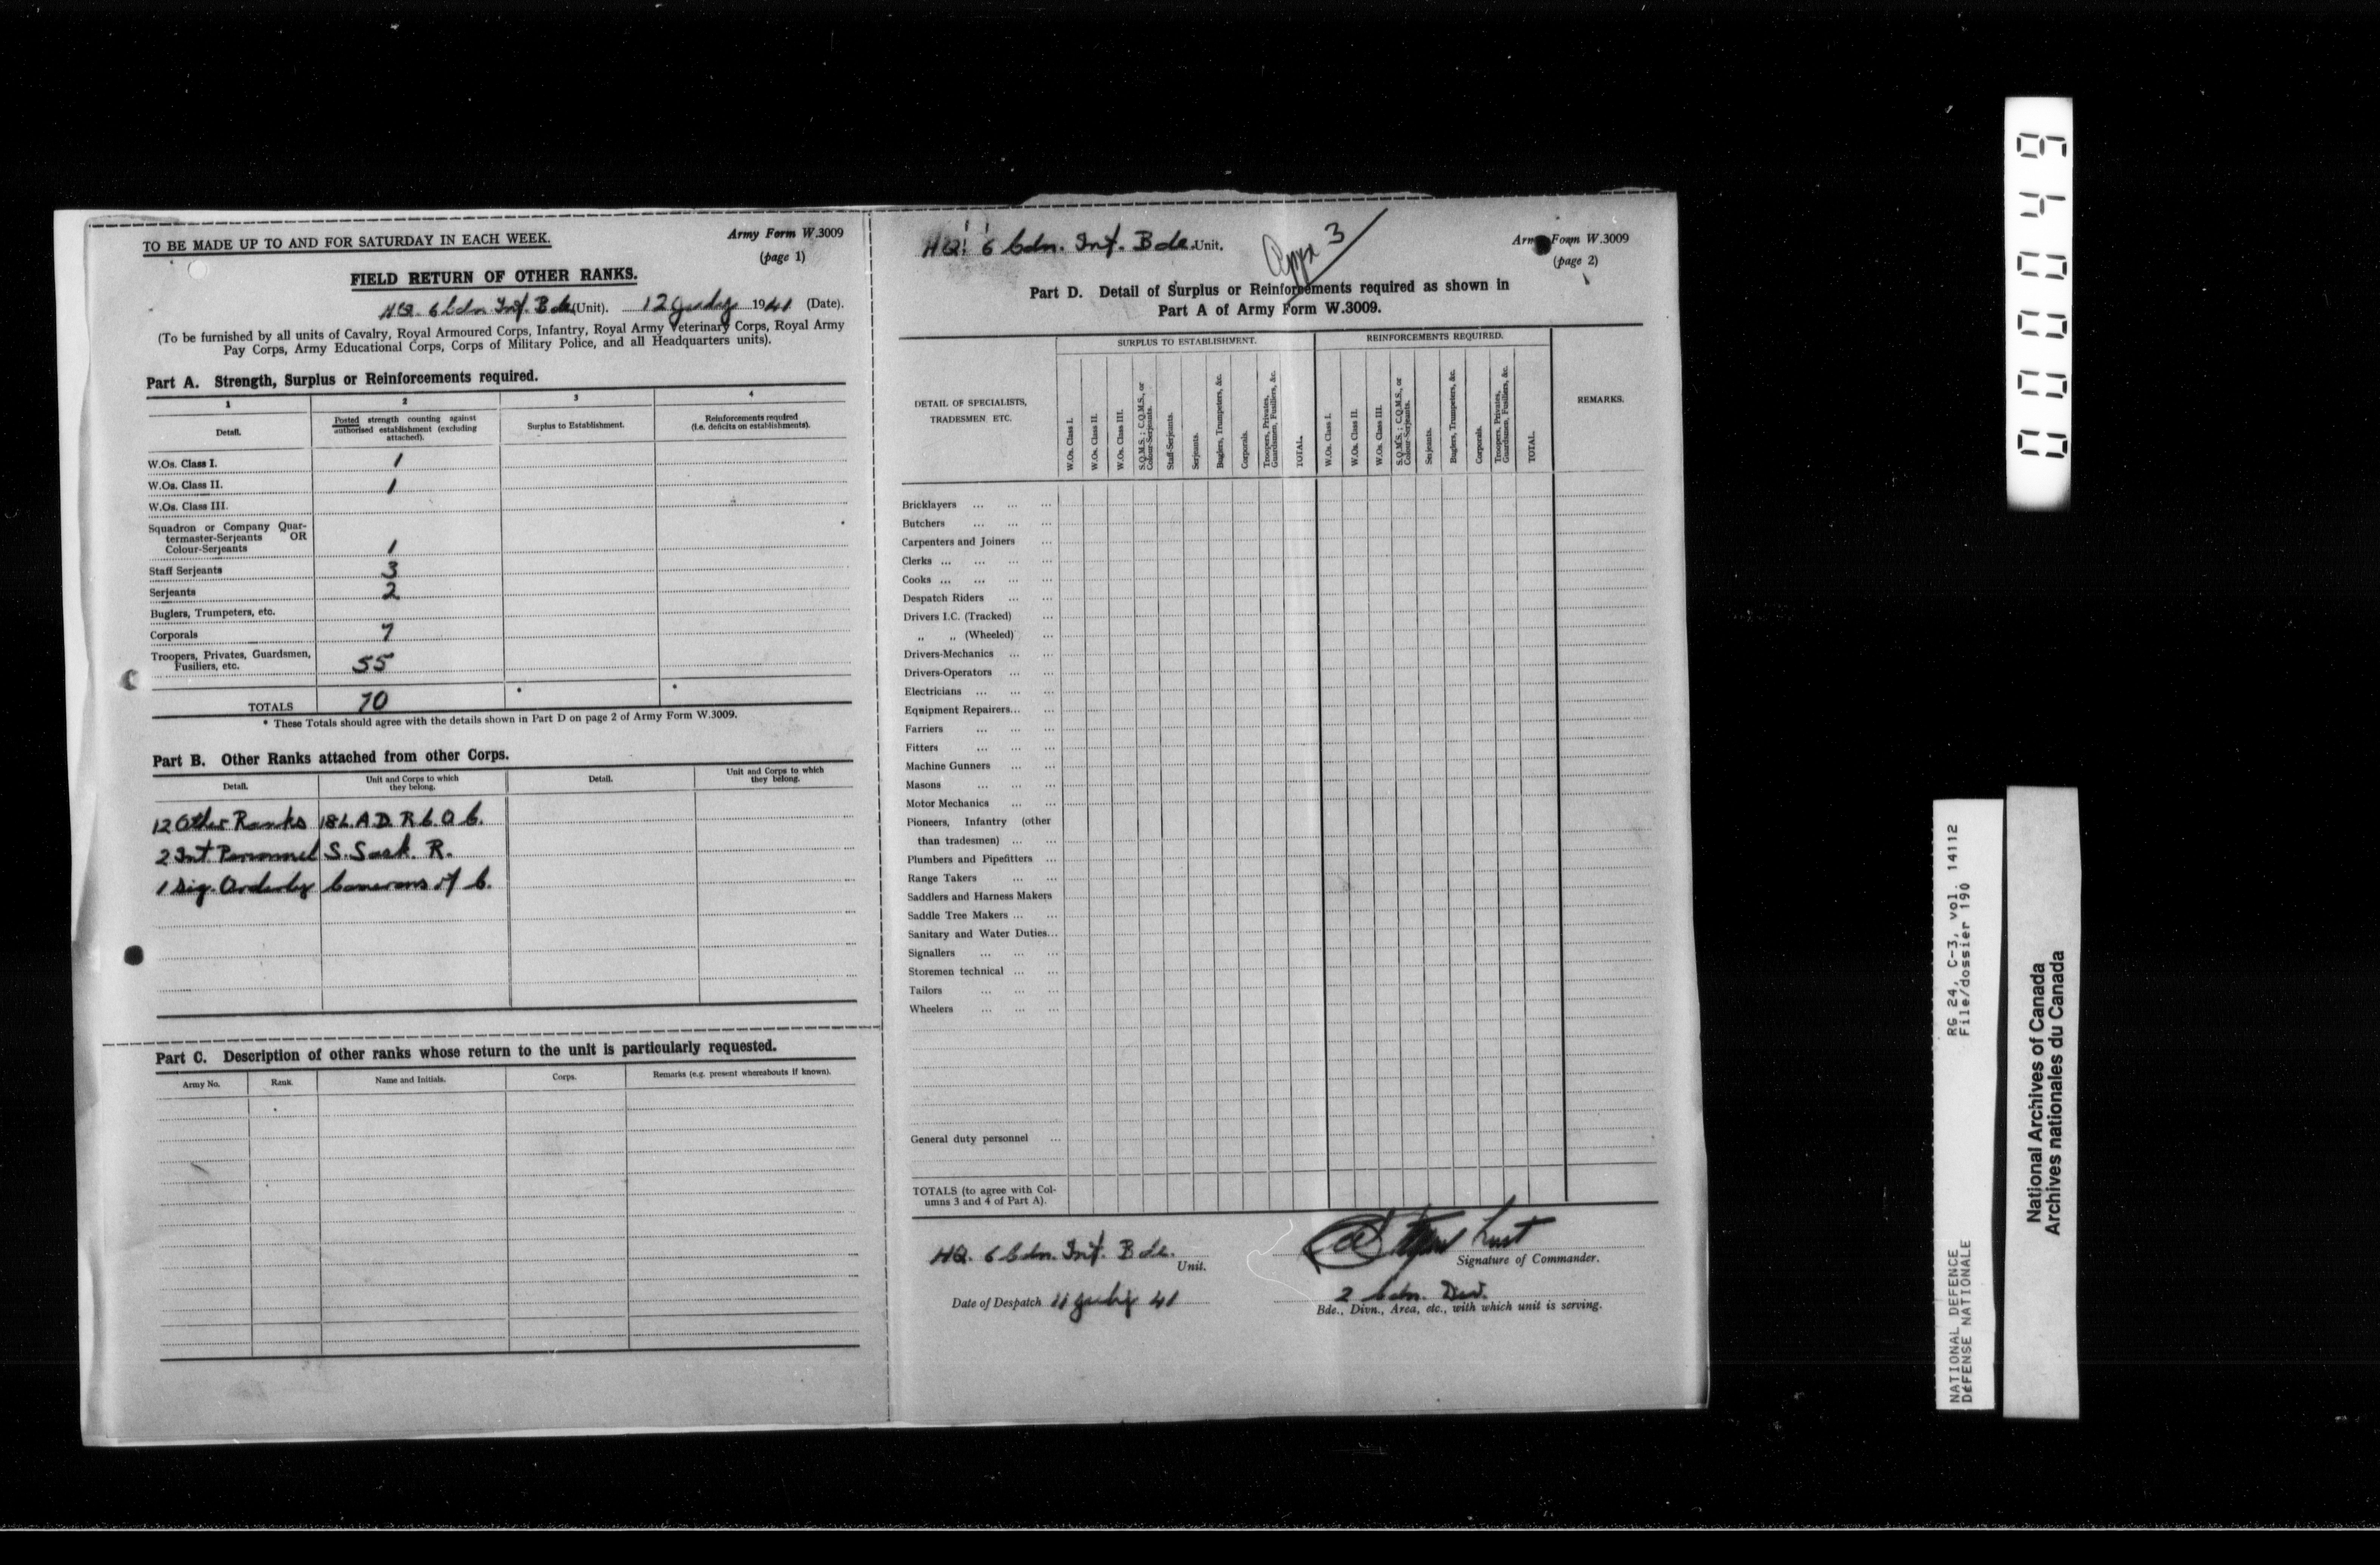 TO BE MADE UP TO AND FOR SATURDAY IN EACH WEEK.
Army Form W.3009
(page 1)
FIELD RETURN OF OTHER RANKS.
HQ. 6 Cdn. Inf. Bde (Unit). 12 July 1941 (Date).
(To be furnished by all units of Cavalry, Royal Armoured Corps, Infantry, Royal Army Veterinary Corps, Royal Army
Pay Corps, Army Educational Corps, Corps of Military Police, and all Headquarters units).
Part A. Strength, Surplus or Reinforcements required.
1 2 3 4
Detail.
Posted strength counting against
authorised establishment (excluding
attached).
Surplus to Establishment.
Reinforcements required
(i.e. deficits on establishments).
W.Os. Class I. 1
W.Os. Class II. 1
W.Os. Class III.
Squadron or Company Quar-
termaster-Serjeants OR
Colour-Serjeants 1
Staff Serjeants 3
Serjeants 2
Buglers, Trumpeters, etc.
Corporals 7
Troopers, Privates, Guardsmen,
Fusiliers, etc. 55
TOTALS 70 * *
* These Totals should agree with the details shown in Part D on page 2 of Army Form W.3009.
Part B. Other Ranks attached from other Corps.
Detail.
Unit and Corps to which
they belong.
Detail.
Unit and Corps to which
they belong.
12 Other Ranks 18 L.A.D. R.C.O.C.
2 Int. Personnel S. Sask. R.
1 Sig. Orderly Camerons of C.
Part C. Description of other ranks whose return to the unit is particularly requested.
Army No. Rank. Name and Initials. Corps. Remarks (e.g. present whereabouts if known).
HQ. 6 Cdn. Inf. Bde. Unit.
Appx 3
Army Form W.3009
(page 2)
Part D. Detail of Surplus or Reinforcements required as shown in
Part A of Army Form W.3009.
DETAIL OF SPECIALISTS,
TRADESMEN ETC.
SURPLUS TO ESTABLISHMENT.
W.Os. Class I.
W.Os. Class II.
W.Os. Class III.
S.Q.M.S.; C.Q.M.S., or
Colour-Serjeants.
Staff-Serjeants.
Serjeants.
Buglers, Trumpeters, &c.
Corporals.
Troopers, Privates,
Guardsmen, Fusiliers, &c.
TOTAL.
REINFORCEMENTS REQUIRED.
W.Os. Class I.
W.Os. Class II.
W.Os. Class III.
S.Q.M.S.; C.Q.M.S., or
Colour-Serjeants.
Serjeants.
Buglers, Trumpeters, &c.
Corporals.
Troopers, Privates,
Guardsmen, Fusiliers, &c.
TOTAL.
REMARKS.
Bricklayers ... ... ...
Butchers ... ... ...
Carpenters and Joiners ...
Clerks ... ... ... ...
Cooks ... ... ... ...
Despatch Riders ... ...
Drivers I.C. (Tracked) ...
„ „ (Wheeled) ...
Drivers-Mechanics ... ...
Drivers-Operators ... ...
Electricians ... ... ...
Equipment Repairers... ...
Farriers ... ... ...
Fitters ... ... ...
Machine Gunners ... ...
Masons ... ... ...
Motor Mechanics ... ...
Pioneers, Infantry (other
than tradesmen) ... ...
Plumbers and Pipefitters ...
Range Takers ... ...
Saddlers and Harness Makers
Saddle Tree Makers ... ...
Sanitary and Water Duties...
Signallers ... ... ...
Storemen technical ... ...
Tailors ... ... ...
Wheelers ... ... ...
General duty personnel ...
TOTALS (to agree with Col-
umns 3 and 4 of Part A).
HQ. 6 Cdn. Inf. Bde.
Unit.
Signature of Commander.
Date of Despatch 11 July 41
2 Cdn. Div.
Bde., Divn., Area, etc., with which unit is serving.
000049
RG 24, C-3, vol. 14112
File/dossier 190
NATIONAL DEFENCE
DéFENSE NATIONALE
National Archives of Canada
Archives nationales du Canada